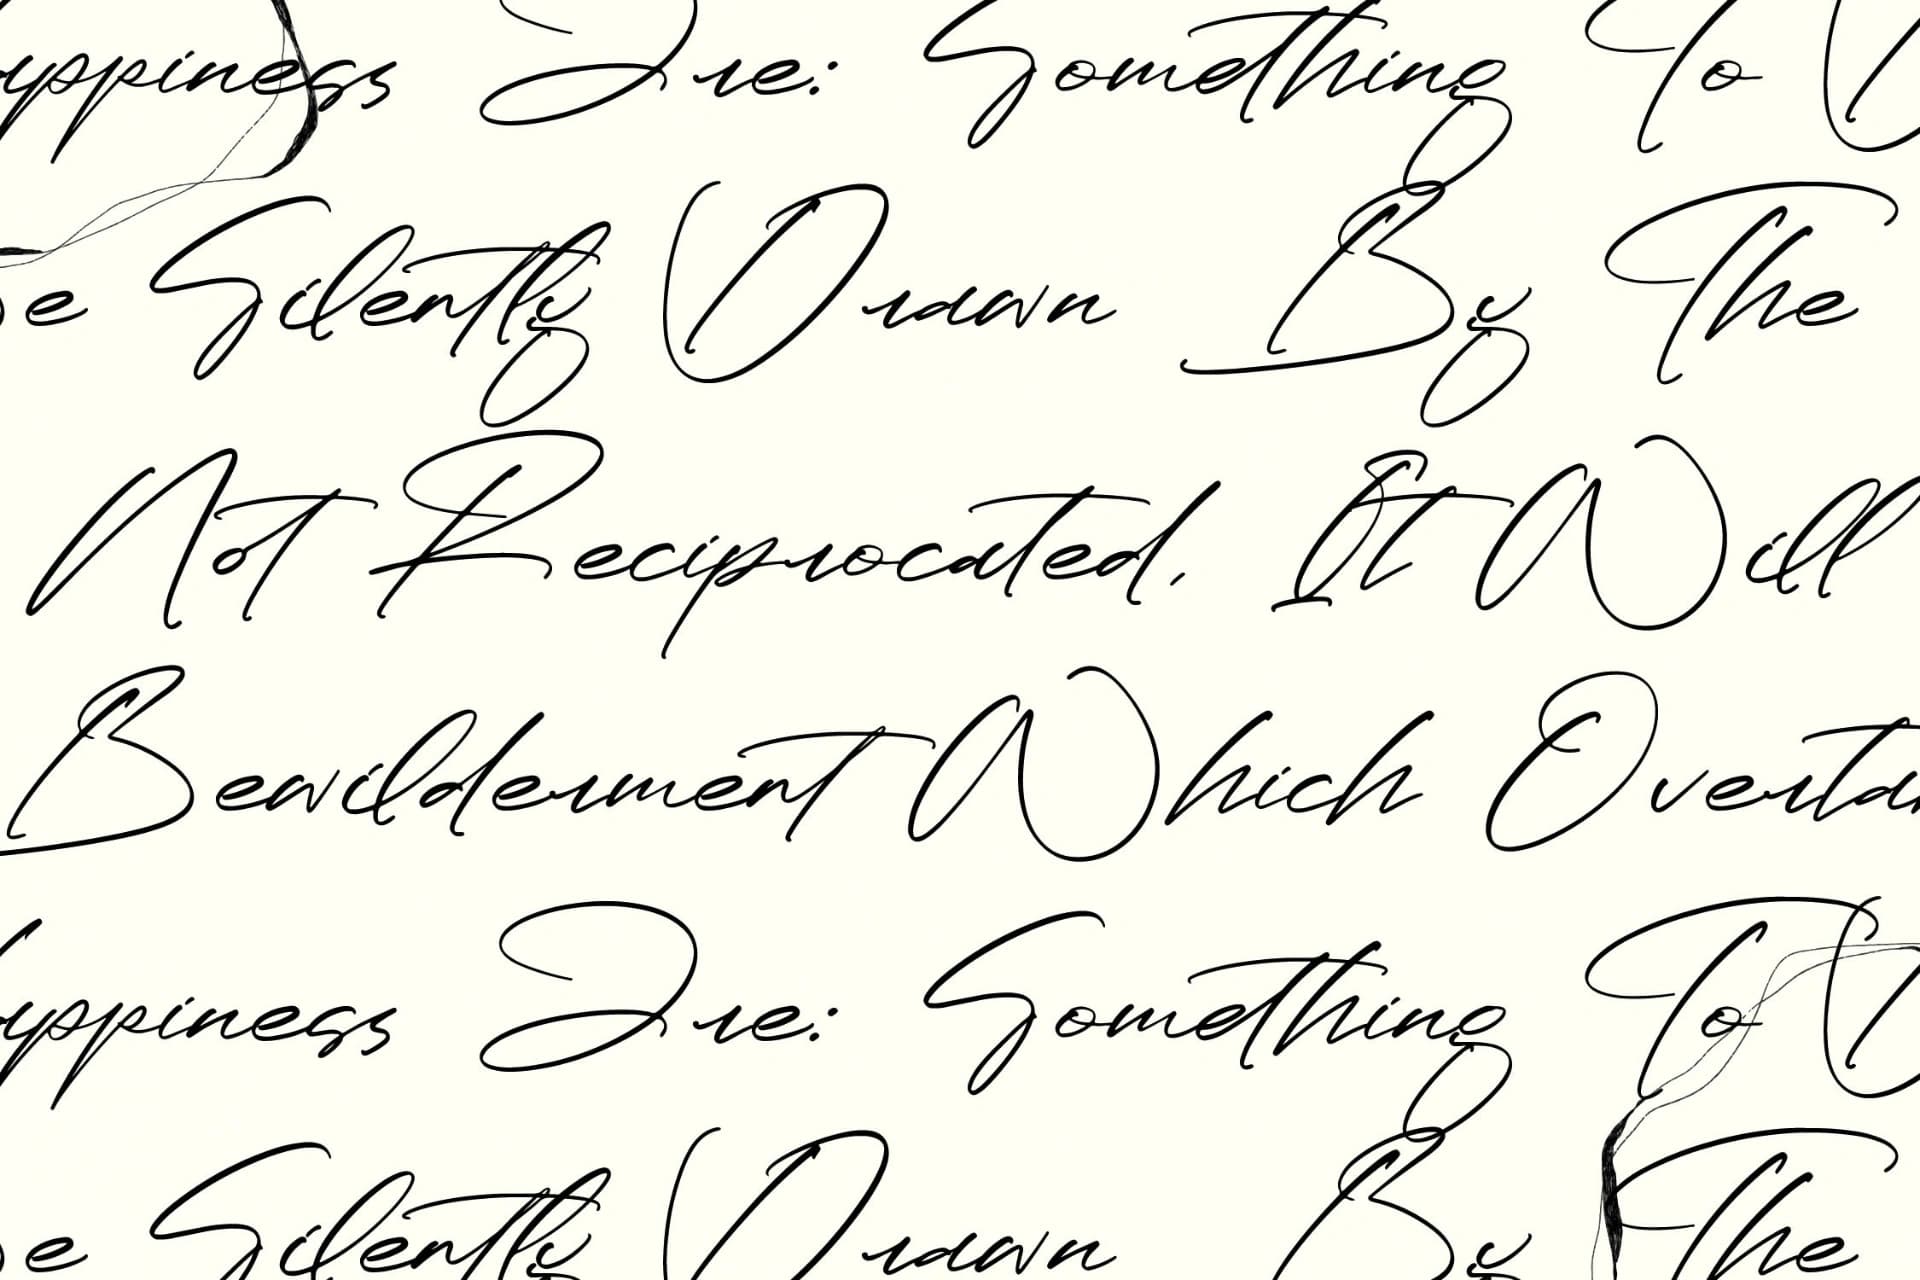 appiness Are: Something To D
e Silently Drawn By The
Not Reciprocated, It Will
Bewilderment Which Overta
appiness Are: Something To D
e Silently Drawn By The